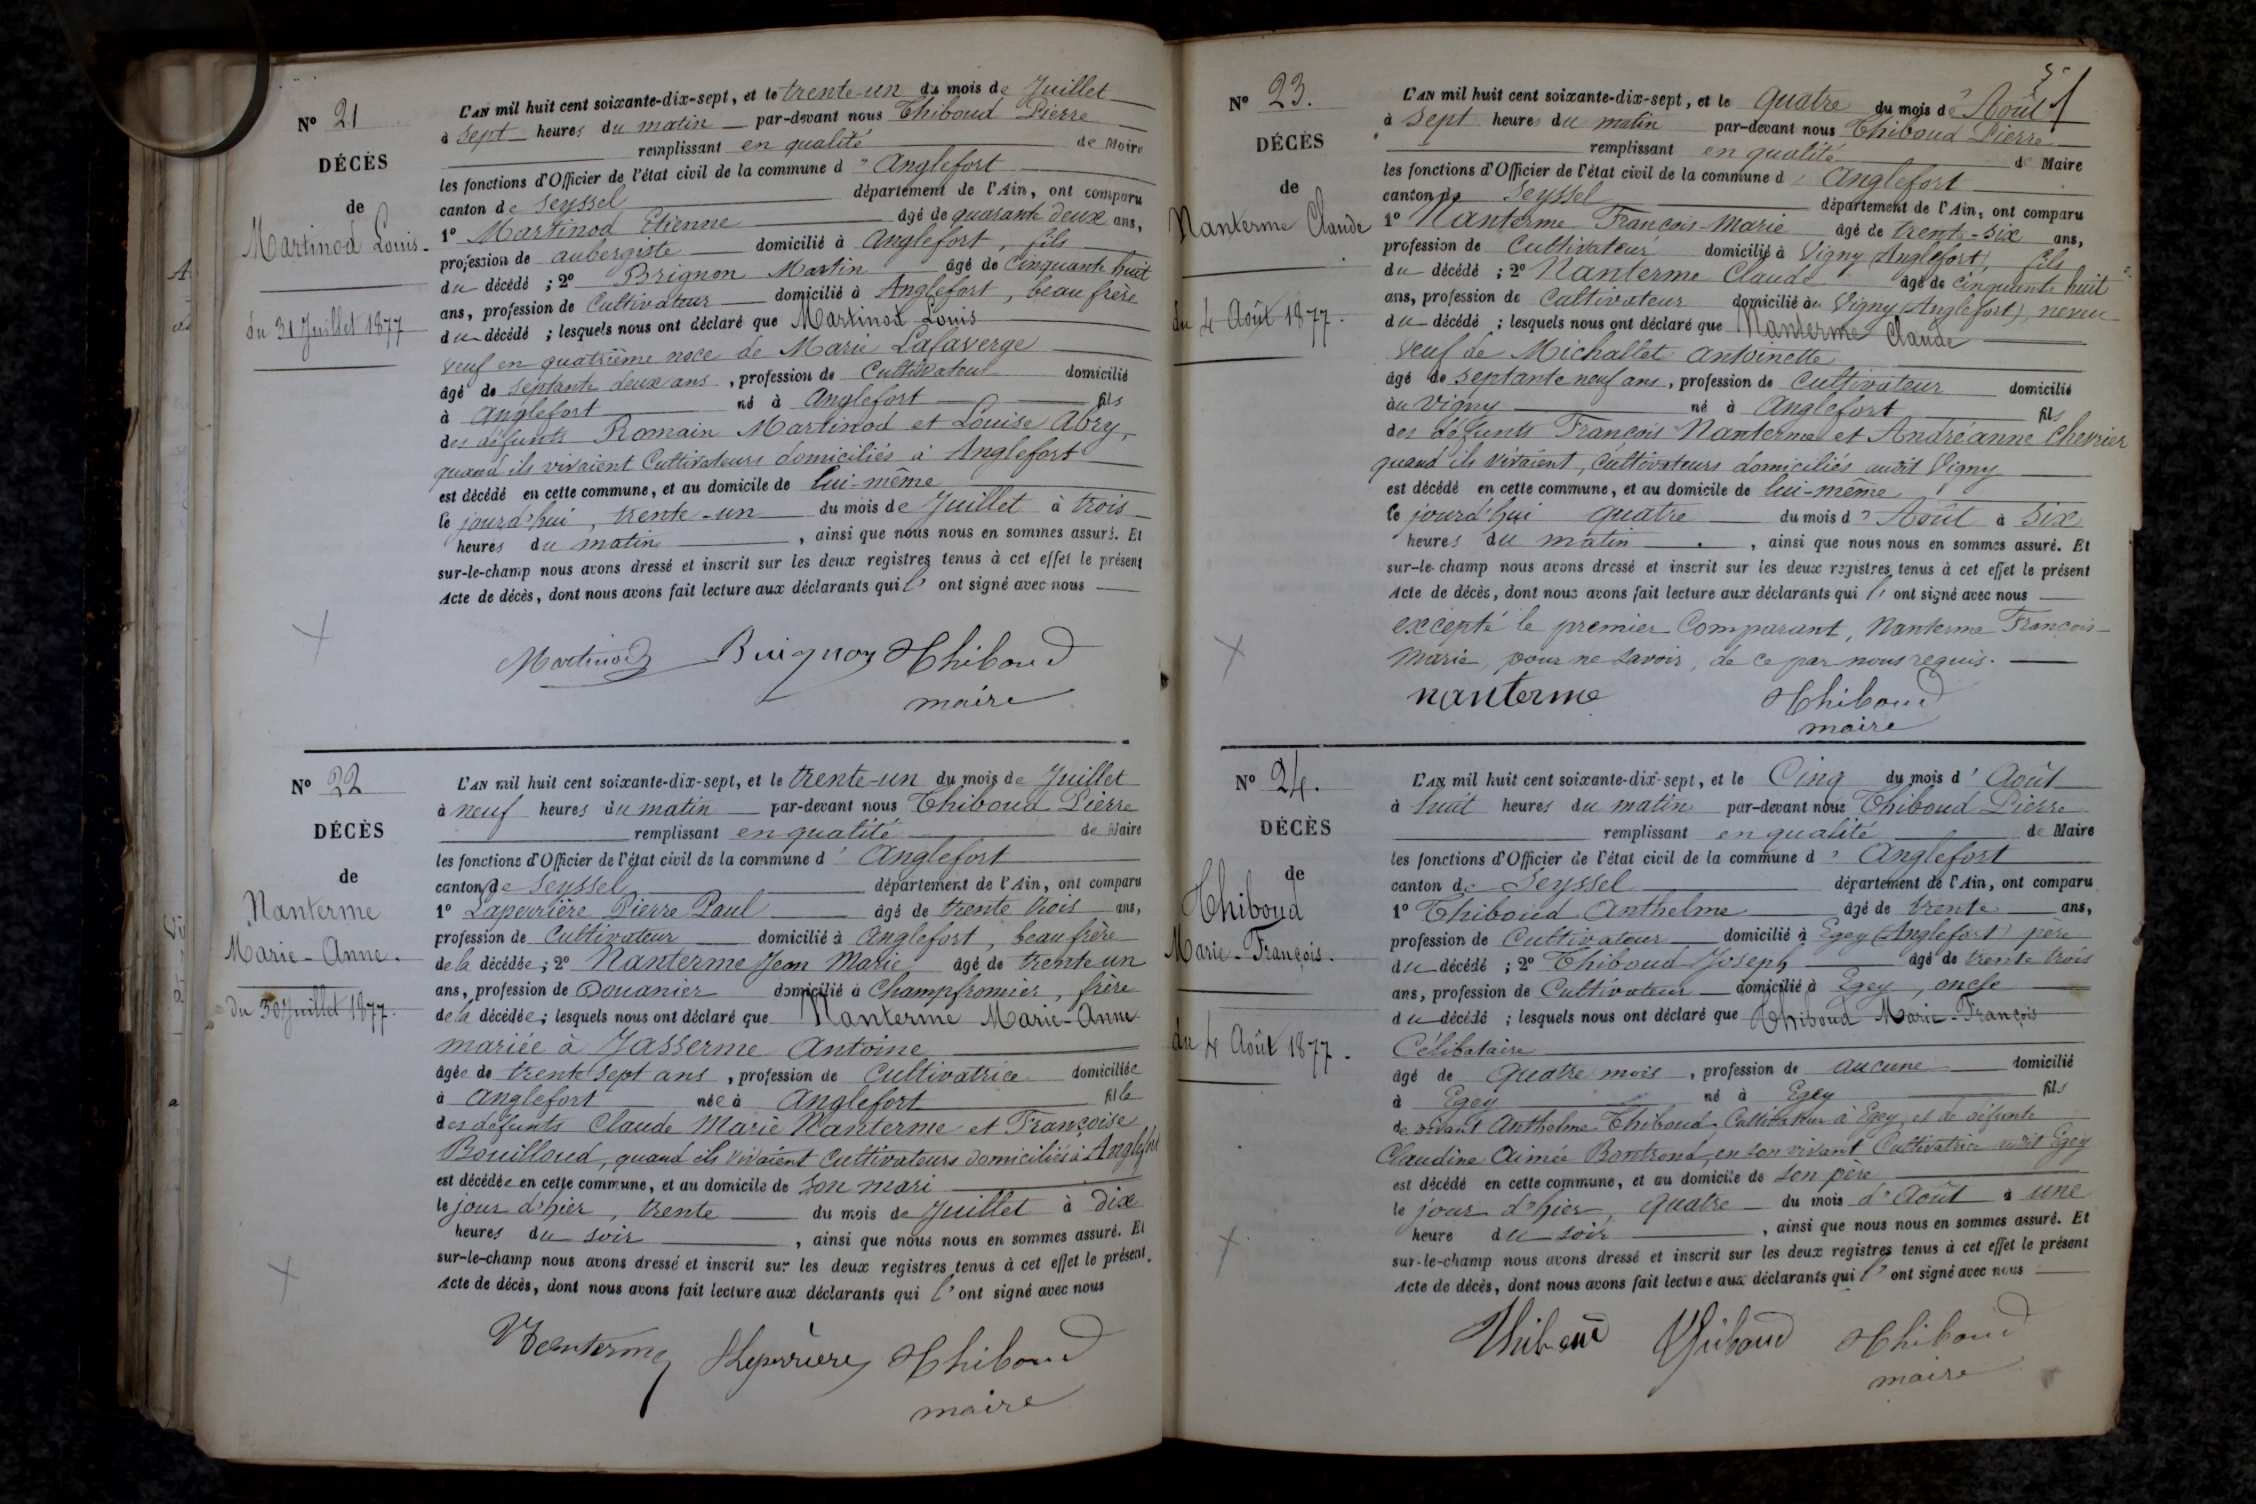 N° 21
DÉCÈS
de
Martinod Louis.
du 31 Juillet 1877
L'AN mil huit cent soixante-dix-sept, et le trente-un du mois de Juillet
à sept heures du matin par-devant nous Thiboud Pierre
remplissant en qualité de Maire
les fonctions d'Officier de l'état civil de la commune d' Anglefort
canton de Seyssel département de l'Ain, ont comparu
1° Martinod Etienne âgé de quarante deux ans,
profession de aubergiste domicilié à Anglefort, fils
du décédé ; 2° Brignon Martin âgé de Cinquante huit
ans, profession de Cultivateur domicilié à Anglefort, beau frère
du décédé ; lesquels nous ont déclaré que Martinod Louis
veuf en quatrième noce de Marie Lafaverge
âgé de septante deux ans, profession de Cultivateur domicilié
à Anglefort né à Anglefort fils
des défunts Romain Martinod et Louise Abry,
quand ils vivaient Cultivateurs domiciliés à Anglefort
est décédé en cette commune, et au domicile de lui-même
le jourd'hui, trente-un du mois de Juillet à trois
heures du matin, ainsi que nous nous en sommes assuré. Et
sur-le-champ nous avons dressé et inscrit sur les deux registres tenus à cet effet le présent
Acte de décès, dont nous avons fait lecture aux déclarants qui l' ont signé avec nous
Martinod Brignon Thiboud
maire
N° 22
DÉCÈS
de
Nanterme
Marie-Anne.
du 30 Juillet 1877.
L'AN mil huit cent soixante-dix-sept, et le trente-un du mois de Juillet
à neuf heures du matin par-devant nous Thiboud Pierre
remplissant en qualité de Maire
les fonctions d'Officier de l'état civil de la commune d' Anglefort
canton de Seyssel département de l'Ain, ont comparu
1° Laperrière Pierre Paul âgé de trente trois ans,
profession de Cultivateur domicilié à Anglefort, beau frère
de la décédée ; 2° Nanterme Jean Marie âgé de trente un
ans, profession de Douanier domicilié à Champfromier, frère
de la décédée ; lesquels nous ont déclaré que Nanterme Marie-Anne
mariée à Jasserme Antoine
âgée de trente sept ans, profession de Cultivatrice domiciliée
à Anglefort née à Anglefort fille
des défunts Claude Marie Nanterme et Françoise
Bouilloud, quand ils vivaient Cultivateurs domiciliés à Anglefort
est décédée en cette commune, et au domicile de son mari
le jour d'hier, trente du mois de Juillet à dix
heures du soir, ainsi que nous nous en sommes assuré. Et
sur-le-champ nous avons dressé et inscrit sur les deux registres tenus à cet effet le présent
Acte de décès, dont nous avons fait lecture aux déclarants qui l' ont signé avec nous
Nanterme Laperrière Thiboud
maire
N° 23.
DÉCÈS
de
Nanterme Claude
du 4 Août 1877.
L'AN mil huit cent soixante-dix-sept, et le quatre du mois d' Août
à sept heures du matin par-devant nous Thiboud Pierre
remplissant en qualité de Maire
les fonctions d'Officier de l'état civil de la commune d' Anglefort
canton de Seyssel département de l'Ain, ont comparu
1° Nanterme François-Marie âgé de trente-six ans,
profession de Cultivateur domicilié à Vigny (Anglefort) fils
du décédé ; 2° Nanterme Claude âgé de cinquante huit
ans, profession de Cultivateur domicilié au Vigny (Anglefort), neveu
du décédé ; lesquels nous ont déclaré que Nanterme Claude
veuf de Michallet Antoinette
âgé de septante neuf ans, profession de Cultivateur domicilié
au Vigny né à Anglefort fils
des défunts François Nanterme et Andréanne Chevrier
quand ils vivaient, Cultivateurs domiciliés audit Vigny
est décédé en cette commune, et au domicile de lui-même
le jourd'hui quatre du mois d' Août à six
heures du matin, ainsi que nous nous en sommes assuré. Et
sur-le-champ nous avons dressé et inscrit sur les deux registres tenus à cet effet le présent
Acte de décès, dont nous avons fait lecture aux déclarants qui l' ont signé avec nous
excepté le premier Comparant, Nanterme François-
Marie, pour ne savoir, de ce par nous requis.
nanterme Thiboud
maire
N° 24.
DÉCÈS
de
Thiboud
Marie-François.
du 4 Août 1877.
L'AN mil huit cent soixante-dix-sept, et le Cinq du mois d' Août
à huit heures du matin par-devant nous Thiboud Pierre
remplissant en qualité de Maire
les fonctions d'Officier de l'état civil de la commune d' Anglefort
canton de Seyssel département de l'Ain, ont comparu
1° Thiboud Anthelme âgé de trente ans,
profession de Cultivateur domicilié à Egey (Anglefort) père
du décédé ; 2° Thiboud Joseph âgé de trente trois
ans, profession de Cultivateur domicilié à Egey, oncle
du décédé ; lesquels nous ont déclaré que Thiboud Marie-François
Célibataire
âgé de quatre mois, profession de aucune domicilié
à Egey né à Egey fils
de vivant Anthelme Thiboud Cultivateur à Egey, et de défunte
Claudine Aimée Bontrond, en son vivant Cultivatrice audit Egey
est décédé en cette commune, et au domicile de son père
le jour d'hier, quatre du mois d' Août à une
heure du soir, ainsi que nous nous en sommes assuré. Et
sur-le-champ nous avons dressé et inscrit sur les deux registres tenus à cet effet le présent
Acte de décès, dont nous avons fait lecture aux déclarants qui l' ont signé avec nous
Thiboud Thiboud Thiboud
maire